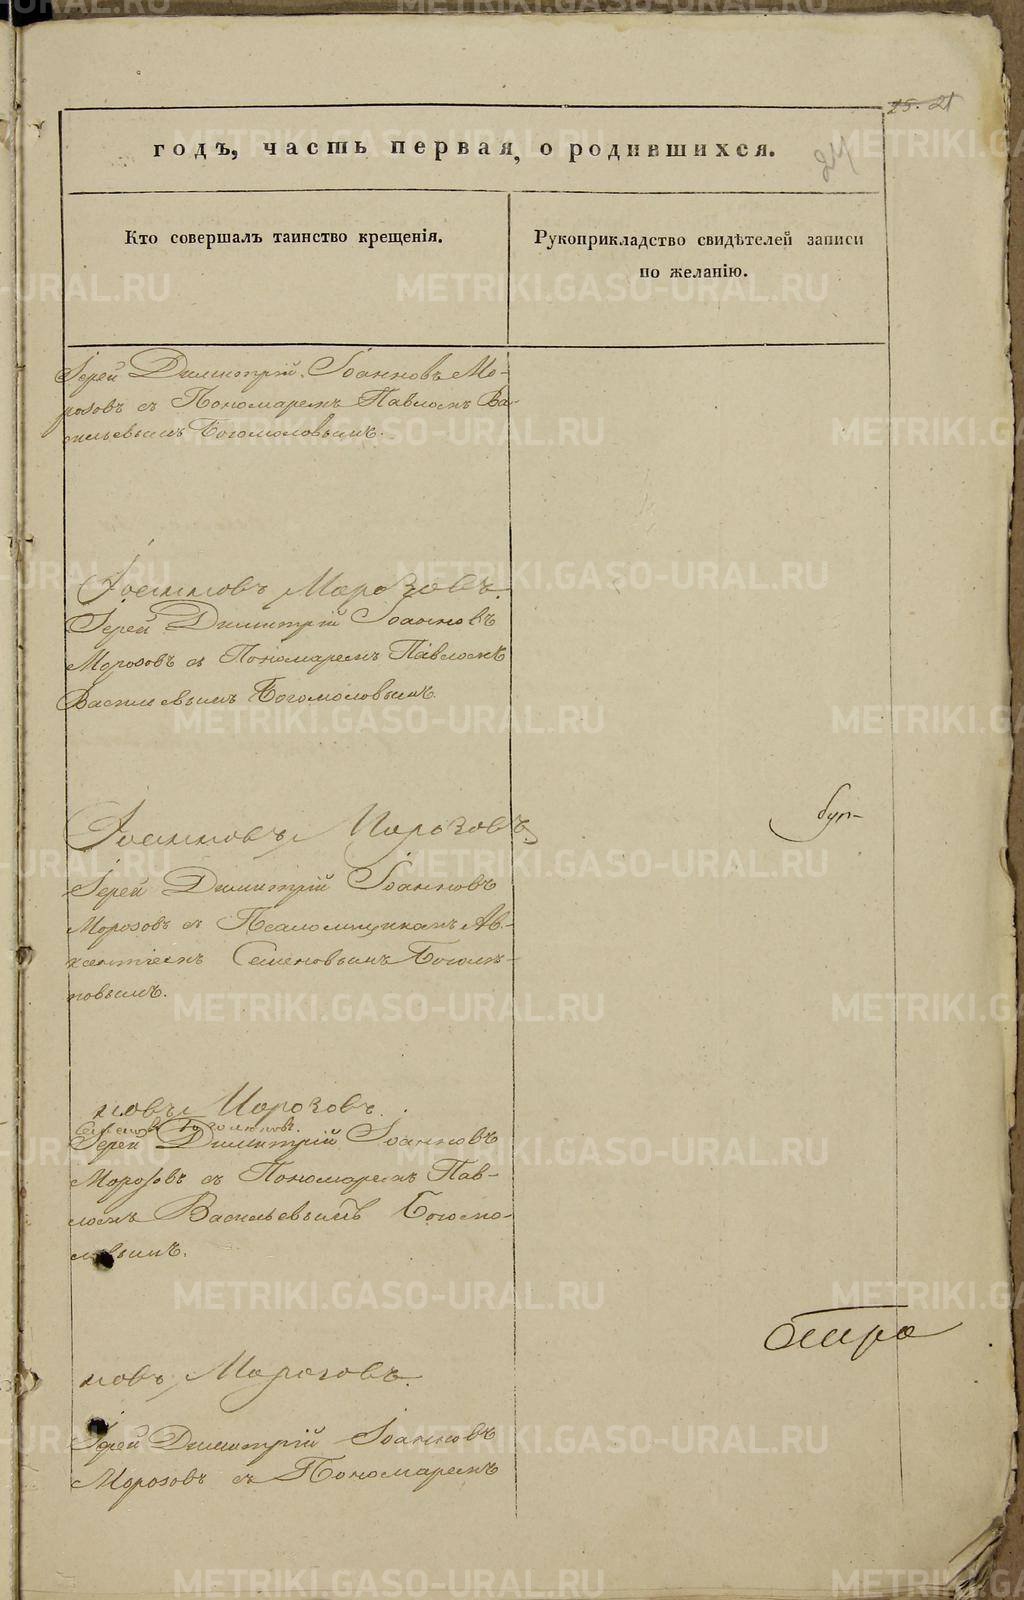 25. 21
24
годъ, часть первая, о родившихся.
Кто совершалъ таинство крещенія.
Рукоприкладство свидѣтелей записи
по желанію.
Іерей Димитрій Іоанновъ Мо-
розовъ съ Пономаремъ Павломъ Ва-
сильевымъ Богомоловымъ.
Іоанновъ Морозовъ.
Іерей Димитрій Іоанновъ
Морозовъ съ Пономаремъ Павломъ
Васильевымъ Богомоловымъ.
Іоанновъ Морозовъ.
Іерей Димитрій Іоанновъ
Морозовъ съ Псаломщикомъ Ав-
ксентіемъ Семеновымъ Боголѣ-
повымъ.
новъ Морозовъ.
Семеновъ Боголѣповъ.
Іерей Димитрій Іоанновъ
Морозовъ съ Пономаремъ Пав-
ломъ Васильевымъ Богомо-
ловымъ.
новъ Морозовъ.
Іерей Димитрій Іоанновъ
Морозовъ съ Пономаремъ
METRIKI.GASO-URAL.RU